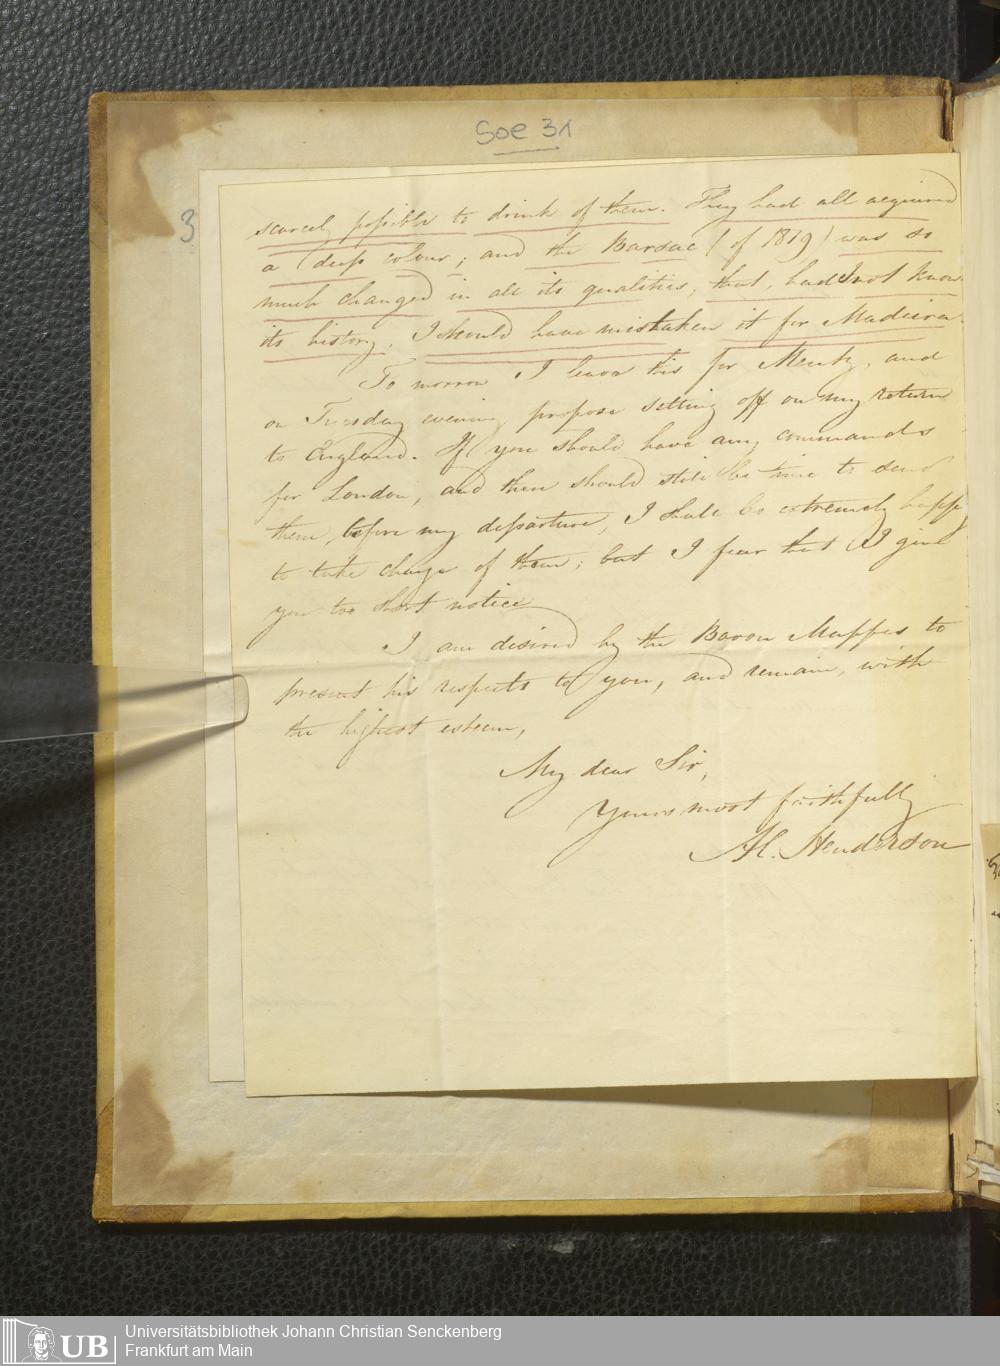 Soe 31
3
scarcely possible to drink of them. They had all acquired
a deep colour; and the Barsac (of 1819) was so
much changed in all its qualities, that, had I not known
its history, I should have mistaken it for Madeira.
To morrow I leave this for Mentz, and
on Tuesday evening propose setting off on my return
to England. If you should have any commands
for London, and there should still be time to send
them before my departure, I shall be extremely happy
to take charge of them; but I fear that I give
you too short notice
I am desired by the Baron Mappes to
present his respects to you, and remain, with
the highest esteem,
My dear Sir,
Yours most faithfully
Al. Henderson
UB
Universitätsbibliothek Johann Christian Senckenberg
Frankfurt am Main